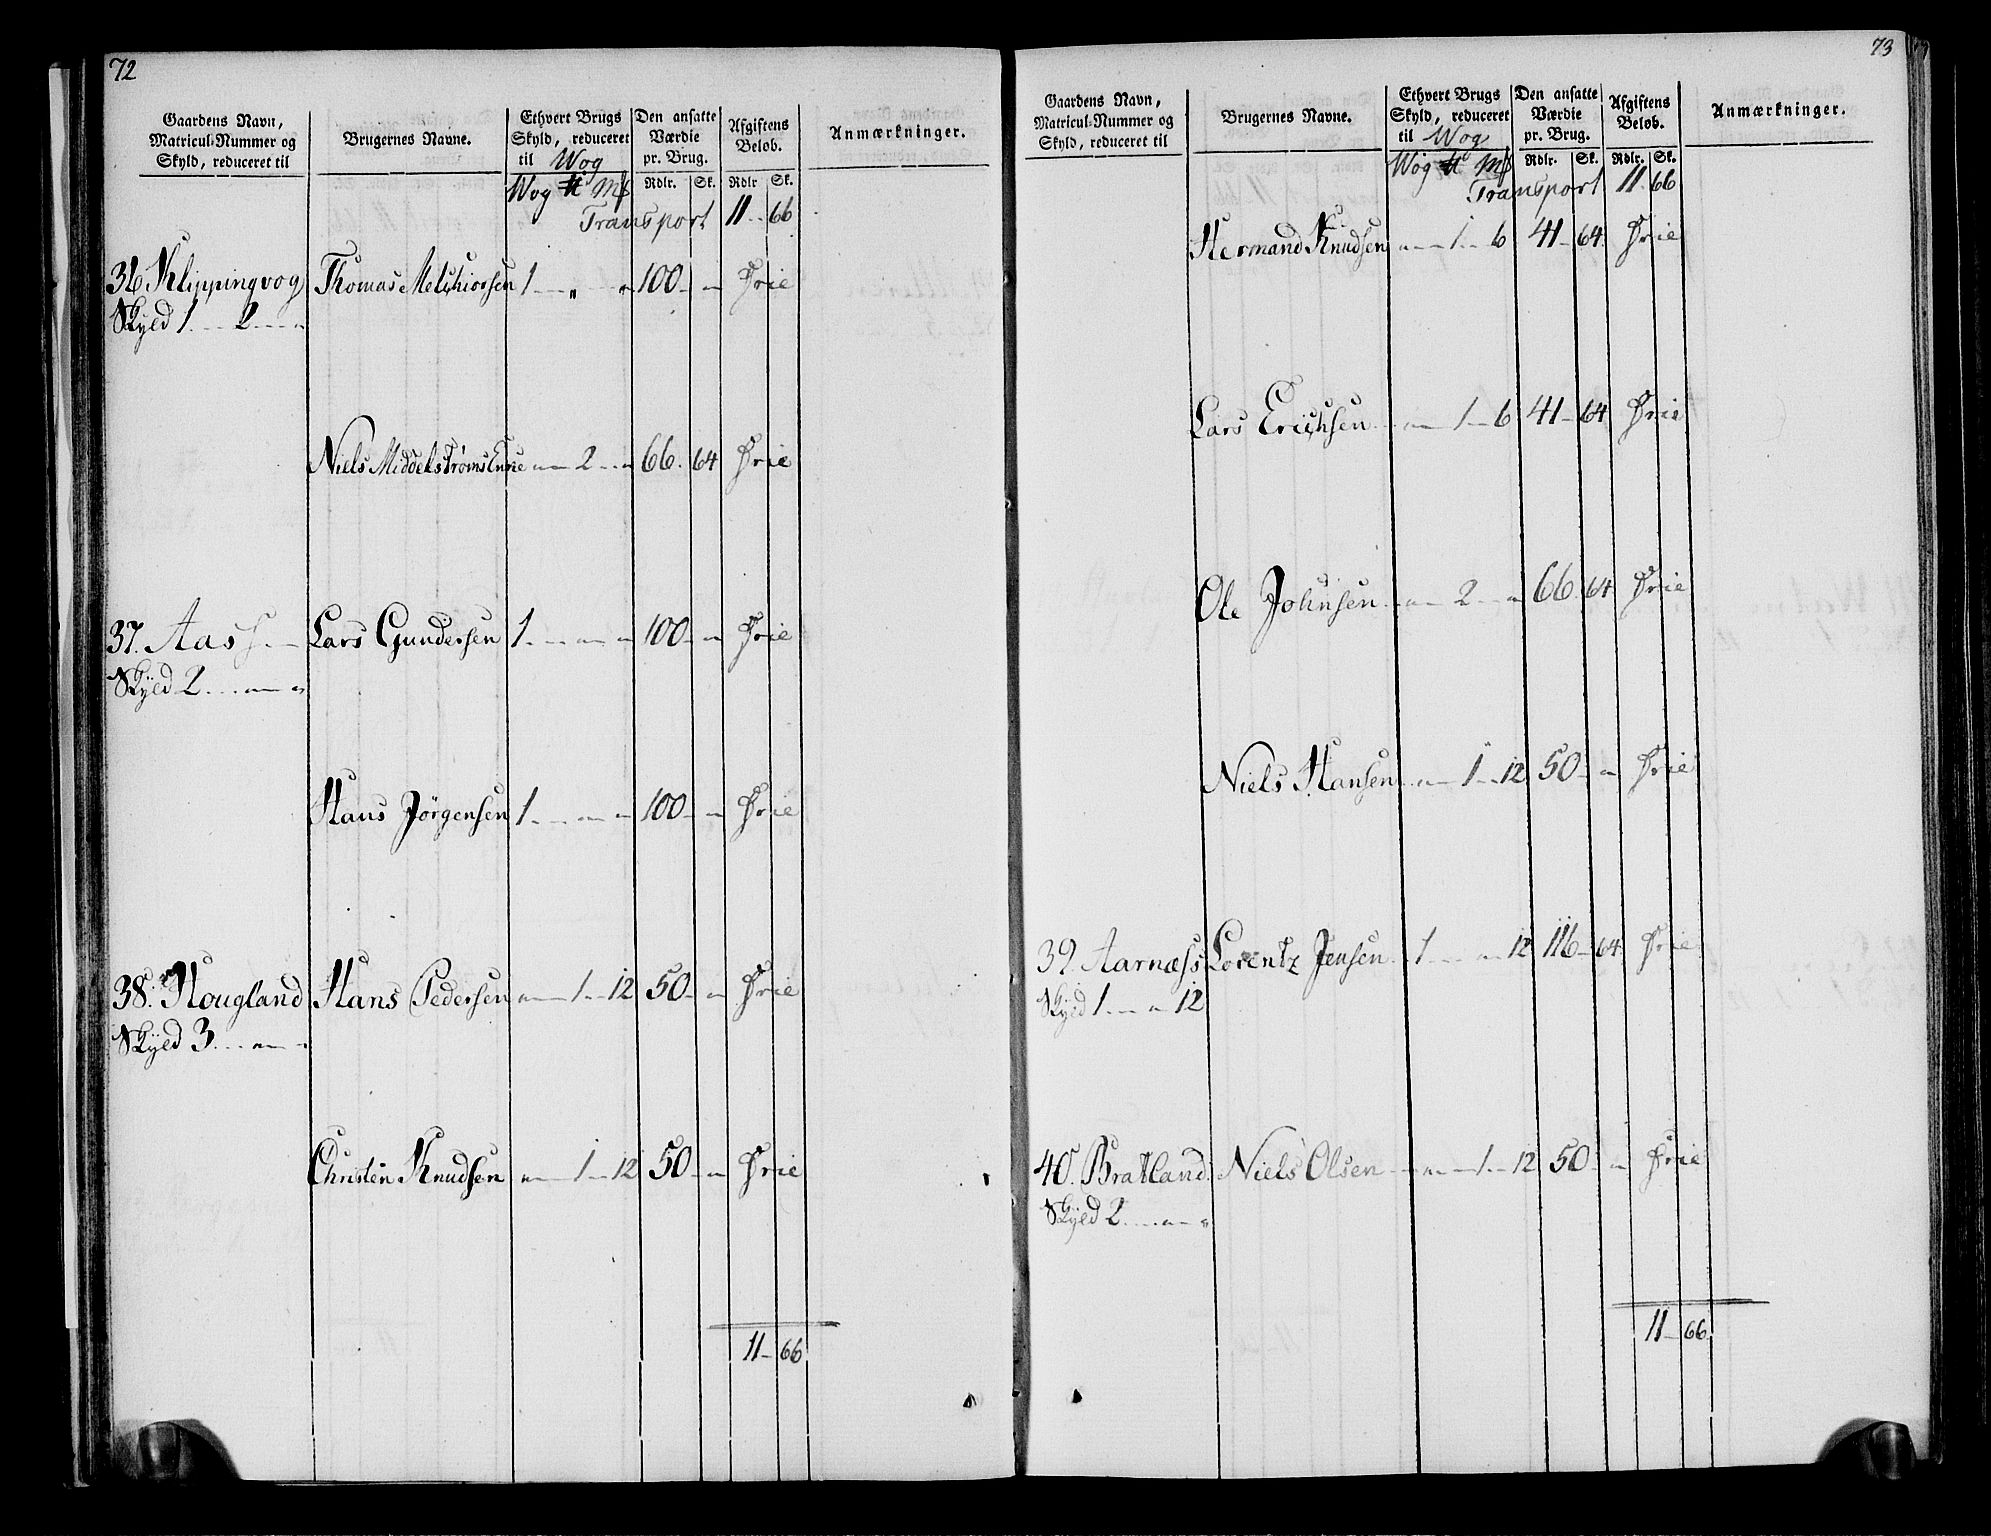 72
Gaardens Navn, Matricul-Nummer og Skyld, reduceret til
Brugernes Navne.
Ethvert Brugs Skyld, reduceret til Wog
Den ansatte Værdie pr. Brug.
Afgiftens Beløb.
Anmærkninger.
Wog ℔ Mk Rdlr. Sk. Rdlr Sk.
Transport 11 66
36 Klippingvog Thomas Melchiorsen 1 " " 100 " Frie
Skyld 1 2 "
Niels Middelstrøms Enke " 2 " 66 64 Frie
37. Aas Lars Gundersen 1 " " 100 " Frie
Skyld 2 " "
Hans Jörgensen 1 " " 100 " Frie
38. Hougland Hans Pedersen " 1 12 50 " Frie
Skyld 3 " "
Christen Knudsen " 1 12 50 " Frie
11 66
73
Gaardens Navn, Matricul-Nummer og Skyld, reduceret til
Brugernes Navne.
Ethvert Brugs Skyld, reduceret til Wog
Den ansatte Værdie pr. Brug.
Afgiftens Beløb.
Anmærkninger.
Wog ℔ Mk Rdlr. Sk. Rdlr. Sk.
Transport 11 66
Hermand Knudsen " 1 6 41 64 Frie
Lars Erichsen " 1 6 41 64 Frie
Ole Johnsen " 2 " 66 64 Frie
Niels Hansen " 1 12 50 " Frie
39. Aarnæss Lorentz Jensen 1 " 12 116 64 Frie
Skyld 1 " 12
40. Bratland Niels Olsen " 1 12 50 " Frie
Skyld 2 " "
11 66